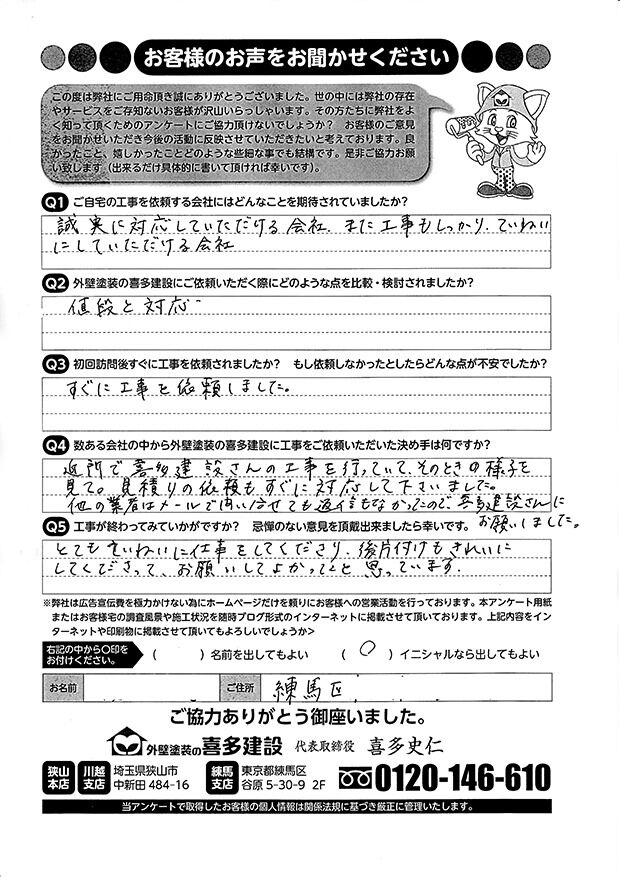 お客様のお声をお聞かせください
この度は弊社にご用命頂き誠にありがとうございました。世の中には弊社の存在
やサービスをご存知ないお客様が沢山いらっしゃいます。その方たちに弊社をよ
く知って頂くためのアンケートにご協力頂けないでしょうか？　お客様のご意見
をお聞かせいただき今後の活動に反映させていただきたいと考えております。良
かったこと、嬉しかったことどのような些細な事でも結構です。是非ご協力お願
い致します（出来るだけ具体的に書いて頂ければ幸いです）。
Q1 ご自宅の工事を依頼する会社にはどんなことを期待されていましたか？
誠実に対応していただける会社、また工事もしっかり、ていねい
にしていただける会社
Q2 外壁塗装の喜多建設にご依頼いただく際にどのような点を比較・検討されましたか？
値段と対応
Q3 初回訪問後すぐに工事を依頼されましたか？　もし依頼しなかったとしたらどんな点が不安でしたか？
すぐに工事を依頼しました。
Q4 数ある会社の中から外壁塗装の喜多建設に工事をご依頼いただいた決め手は何ですか？
近所で喜多建設さんの工事を行っていて、そのときの様子を
見て。見積りの依頼もすぐに対応して下さいました。
他の業者はメールで問い合せても返信もなかったので喜多建設さんに
お願いしました。
Q5 工事が終わってみていかがですか？　忌憚のない意見を頂戴出来ましたら幸いです。
とてもていねいに仕事をしてくださり、後片付けもきれいに
してくださって、お願いしてよかったと思っています。
※弊社は広告宣伝費を極力かけない為にホームページだけを頼りにお客様への営業活動を行っております。本アンケート用紙
またはお客様宅の調査風景や施工状況を随時ブログ形式のインターネットに掲載させて頂いております。上記内容をイン
ターネットや印刷物に掲載させて頂いてもよろしいでしょうか＞
右記の中から〇印を
お付けください。
（　　　）名前を出してもよい　　（　〇　）イニシャルなら出してもよい
お名前　ご住所　練馬区
ご協力ありがとう御座いました。
外壁塗装の喜多建設　代表取締役　喜多史仁
狭山本店　川越支店　埼玉県狭山市
中新田 484-16
練馬支店　東京都練馬区
谷原 5-30-9 2F
0120-146-610
当アンケートで取得したお客様の個人情報は関係法規に基づき厳正に管理いたします。